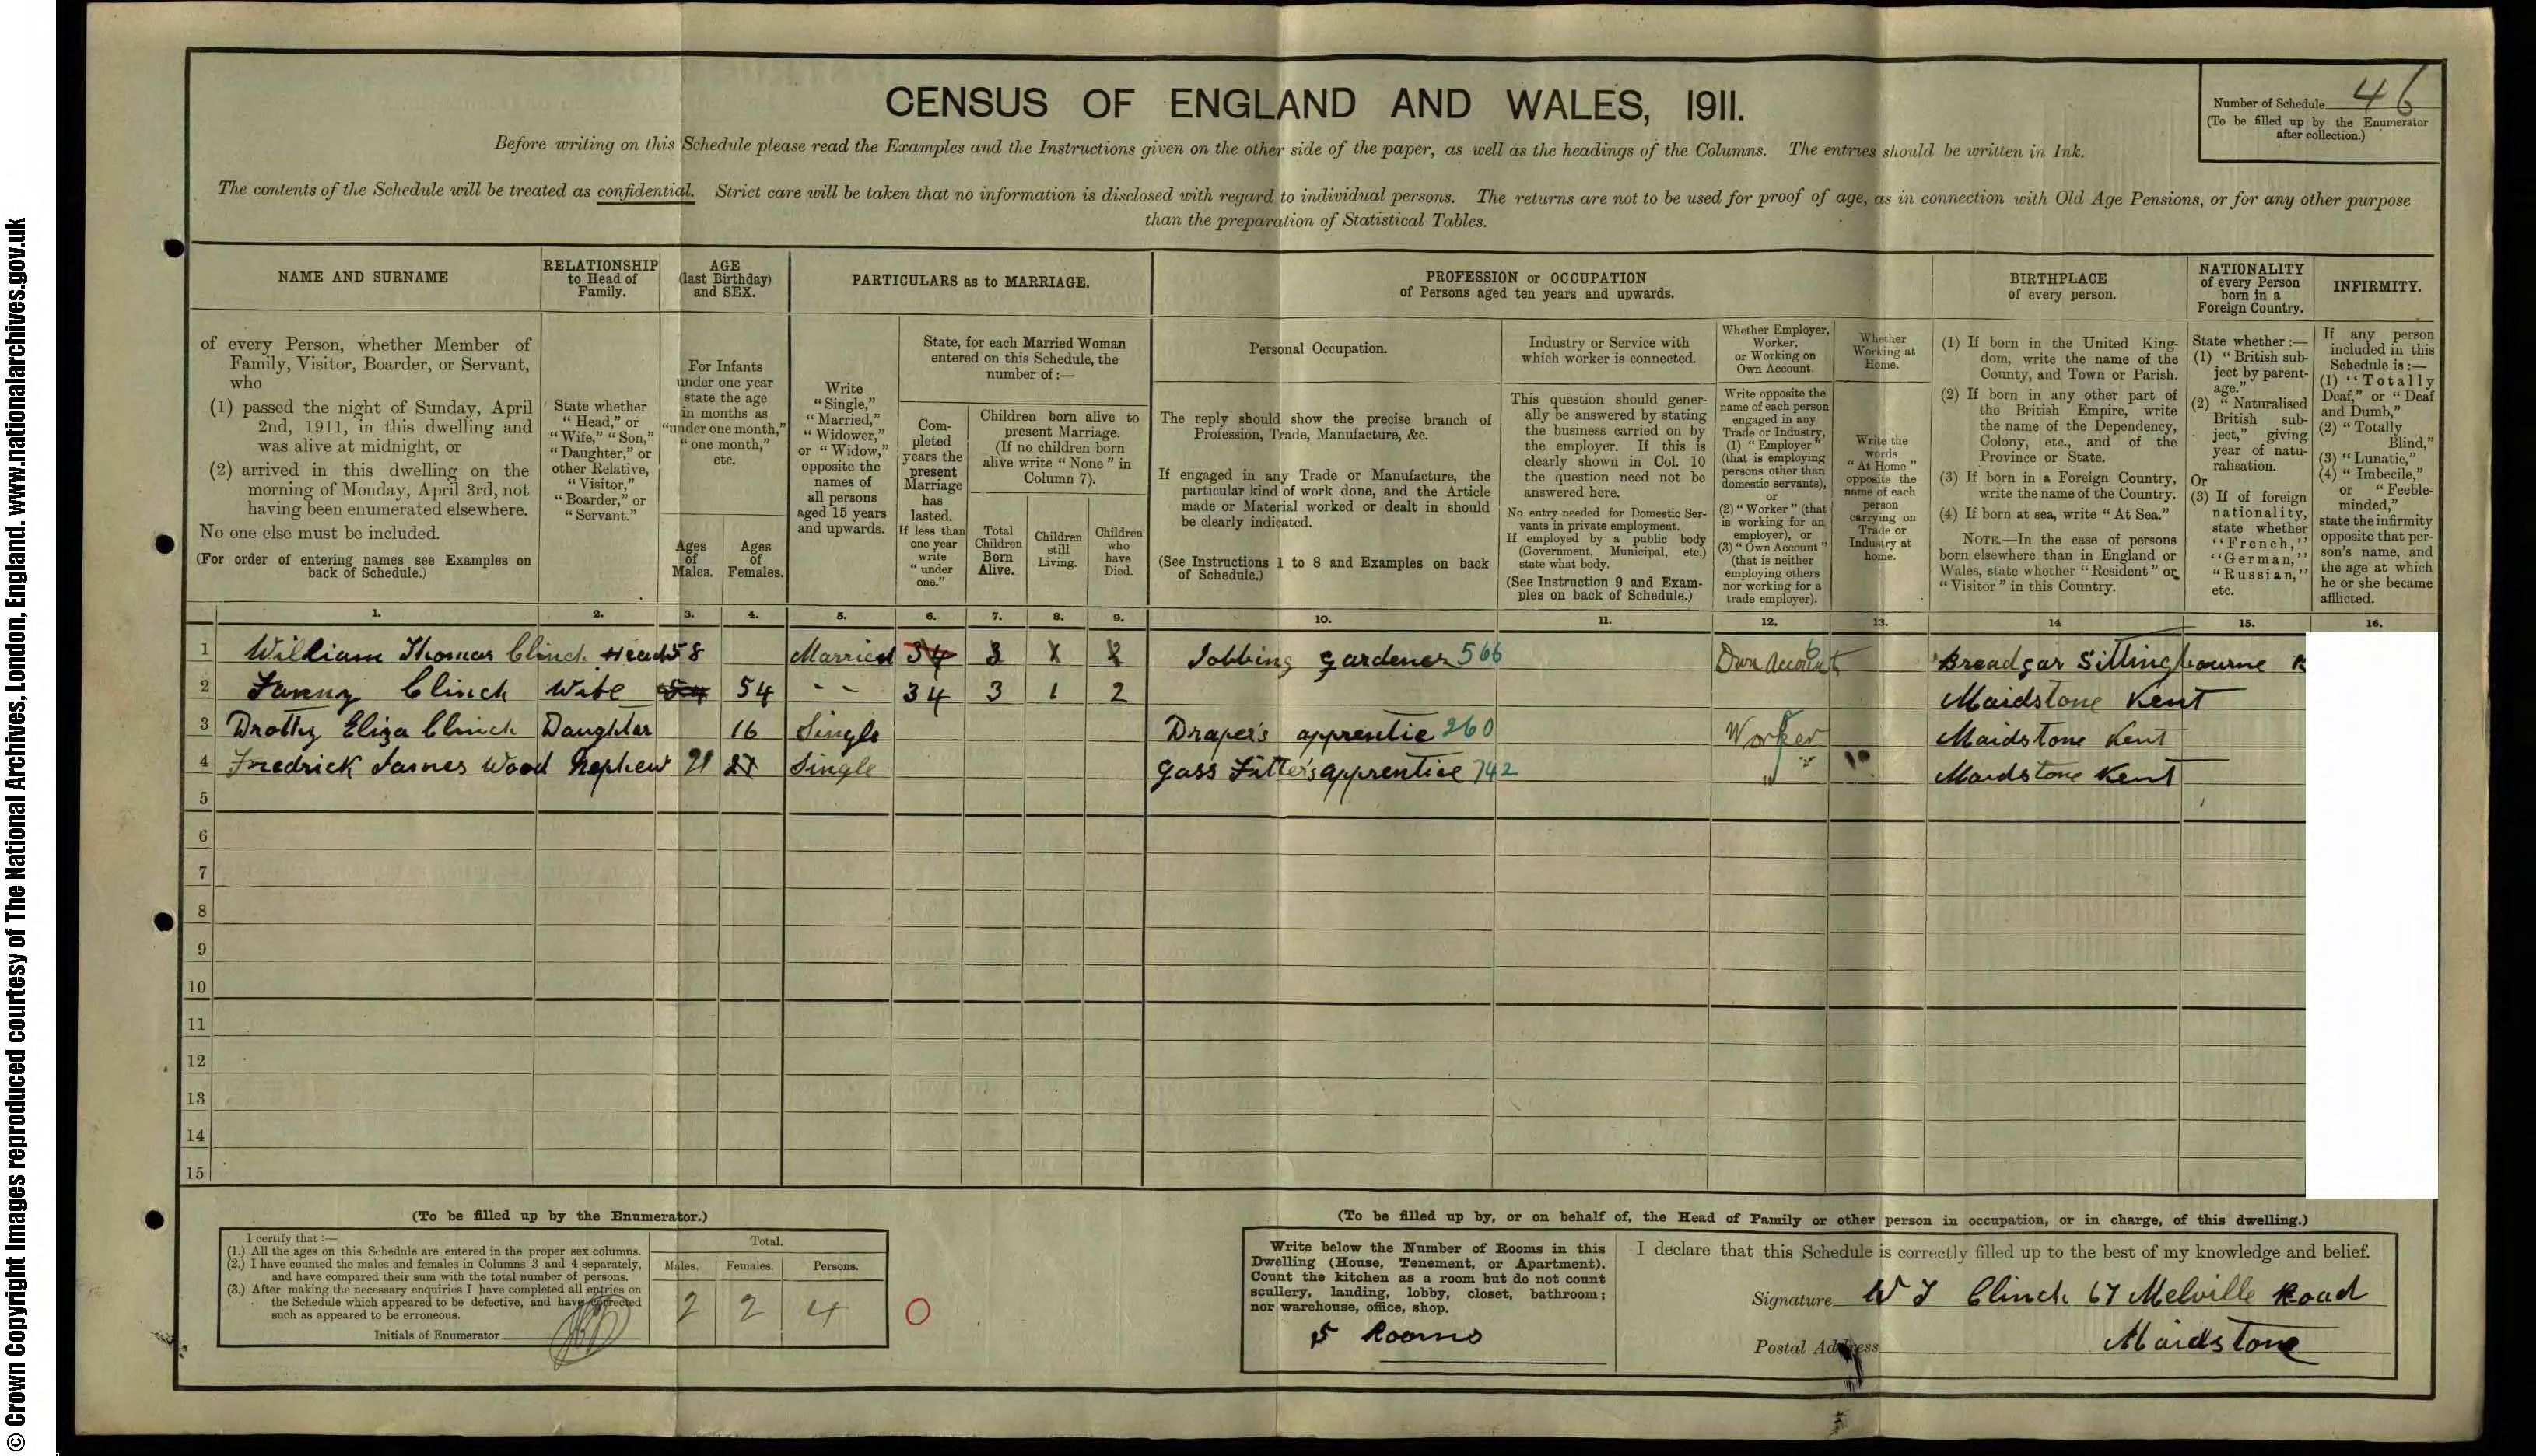 © Crown Copyright Images reproduced courtesy of The National Archives, London, England. www.nationalarchives.gov.uk
CENSUS OF ENGLAND AND WALES, 1911.
Number of Schedule 46
(To be filled up by the Enumerator
after collection.)
Before writing on this Schedule please read the Examples and the Instructions given on the other side of the paper, as well as the headings of the Columns. The entries should be written in Ink.
The contents of the Schedule will be treated as confidential. Strict care will be taken that no information is disclosed with regard to individual persons. The returns are not to be used for proof of age, as in connection with Old Age Pensions, or for any other purpose
than the preparation of Statistical Tables.
NAME AND SURNAME
RELATIONSHIP
to Head of
Family.
AGE
(last Birthday)
and SEX.
PARTICULARS as to MARRIAGE.
PROFESSION or OCCUPATION
of Persons aged ten years and upwards.
BIRTHPLACE
of every person.
NATIONALITY
of every Person
born in a
Foreign Country.
INFIRMITY.
of every Person, whether Member of
Family, Visitor, Boarder, or Servant,
who
(1) passed the night of Sunday, April
2nd, 1911, in this dwelling and
was alive at midnight, or
(2) arrived in this dwelling on the
morning of Monday, April 3rd, not
having been enumerated elsewhere.
No one else must be included.
(For order of entering names see Examples on
back of Schedule.)
State whether
"Head," or
"Wife," "Son,"
"Daughter," or
other Relative,
"Visitor,"
"Boarder," or
"Servant."
For Infants
under one year
state the age
in months as
"under one month,"
"one month,"
etc.
Ages
of
Males.
Ages
of
Females.
Write
"Single,"
"Married,"
"Widower,"
or "Widow,"
opposite the
names of
all persons
aged 15 years
and upwards.
State, for each Married Woman
entered on this Schedule, the
number of :—
Com-
pleted
years the
present
Marriage
has
lasted.
If less than
one year
write
"under
one."
Children born alive to
present Marriage.
(If no children born
alive write "None" in
Column 7).
Total
Children
Born
Alive.
Children
still
Living.
Children
who
have
Died.
Personal Occupation.
The reply should show the precise branch of
Profession, Trade, Manufacture, &c.
If engaged in any Trade or Manufacture, the
particular kind of work done, and the Article
made or Material worked or dealt in should
be clearly indicated.
(See Instructions 1 to 8 and Examples on back
of Schedule.)
Industry or Service with
which worker is connected.
This question should gener-
ally be answered by stating
the business carried on by
the employer. If this is
clearly shown in Col. 10
the question need not be
answered here.
No entry needed for Domestic Ser-
vants in private employment.
If employed by a public body
(Government, Municipal, etc.)
state what body.
(See Instruction 9 and Exam-
ples on back of Schedule.)
Whether Employer,
Worker,
or Working on
Own Account.
Write opposite the
name of each person
engaged in any
Trade or Industry,
(1) "Employer"
(that is employing
persons other than
domestic servants),
or
(2) "Worker" (that
is working for an
employer), or
(3) "Own Account"
(that is neither
employing others
nor working for a
trade employer).
Whether
Working at
Home.
Write the
words
"At Home"
opposite the
name of each
person
carrying on
Trade or
Industry at
home.
(1) If born in the United King-
dom, write the name of the
County, and Town or Parish.
(2) If born in any other part of
the British Empire, write
the name of the Dependency,
Colony, etc., and of the
Province or State.
(3) If born in a Foreign Country,
write the name of the Country.
(4) If born at sea, write "At Sea."
NOTE.—In the case of persons
born elsewhere than in England or
Wales, state whether "Resident" or
"Visitor" in this Country.
State whether :—
(1) "British sub-
ject by parent-
age."
(2) "Naturalised
British sub-
ject," giving
year of natu-
ralisation.
Or
(3) If of foreign
nationality,
state whether
"French,"
"German,"
"Russian,"
etc.
If any person
included in this
Schedule is :—
(1) "Totally
Deaf," or "Deaf
and Dumb,"
(2) "Totally
Blind,"
(3) "Lunatic,"
(4) "Imbecile,"
or "Feeble-
minded,"
state the infirmity
opposite that per-
son's name, and
the age at which
he or she became
afflicted.
1. 2. 3. 4. 5. 6. 7. 8. 9. 10. 11. 12. 13. 14 15. 16.
1 William Thomas Clinch Head 58 Married 34 3 1 2 Jobbing gardener 566 Own Account 6 Breadgar Sittingbourne K
2 Fanny Clinch Wife 54 54 - - 34 3 1 2 Maidstone Kent
3 Drothy Eliza Clinch Daughter 16 Single Draper's apprentie 260 Worker Maidstone Kent
4 Fredrick James Wood Nephew 21 21 Single Gass Fitter's apprentice 742 " " Maidstone Kent
5
6
7
8
9
10
11
12
13
14
15
(To be filled up by the Enumerator.)
I certify that :—
(1.) All the ages on this Schedule are entered in the proper sex columns.
(2.) I have counted the males and females in Columns 3 and 4 separately,
and have compared their sum with the total number of persons.
(3.) After making the necessary enquiries I have completed all entries on
the Schedule which appeared to be defective, and have corrected
such as appeared to be erroneous.
Initials of Enumerator
Total.
Males. Females. Persons.
2 2 4 0
(To be filled up by, or on behalf of, the Head of Family or other person in occupation, or in charge, of this dwelling.)
Write below the Number of Rooms in this
Dwelling (House, Tenement, or Apartment).
Count the kitchen as a room but do not count
scullery, landing, lobby, closet, bathroom;
nor warehouse, office, shop.
5 Rooms
I declare that this Schedule is correctly filled up to the best of my knowledge and belief.
Signature W T Clinch 67 Melville Road
Postal Address Maidstone